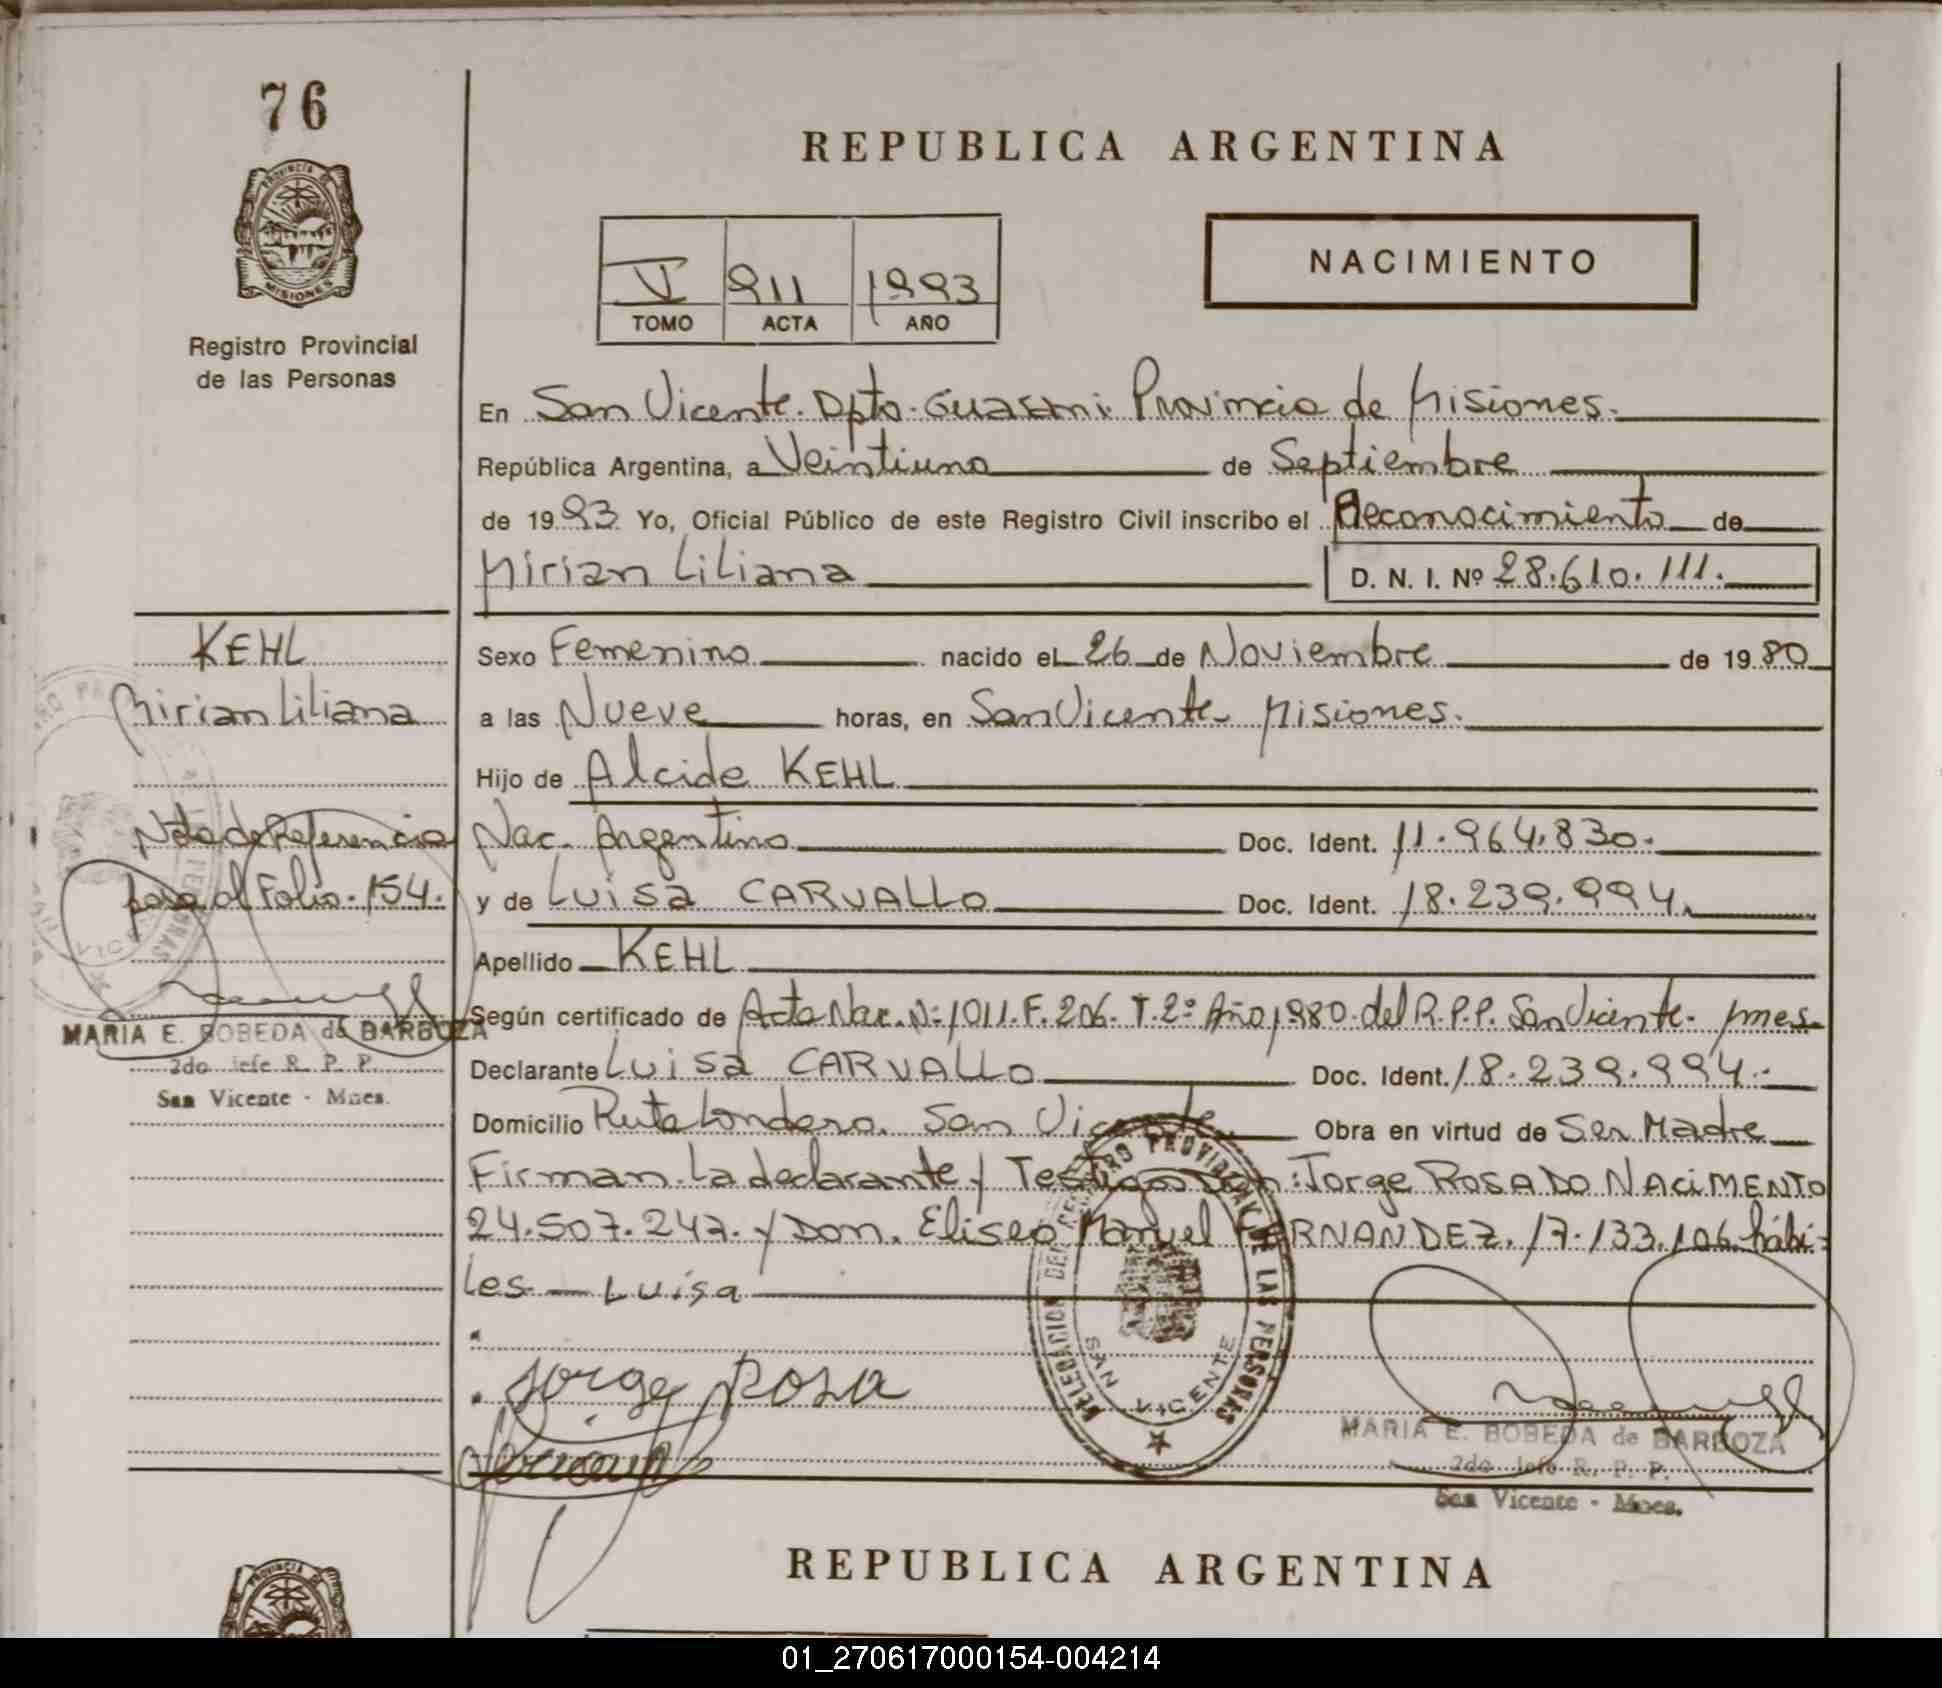 76
PROVINCIA DE
MISIONES
Registro Provincial
de las Personas
REPUBLICA ARGENTINA
V 911 1993
TOMO ACTA AÑO
NACIMIENTO
En San Vicente. Dpto. Guarani Provincia de Misiones.
República Argentina, a Veintiuno de Septiembre
de 1993 Yo, Oficial Público de este Registro Civil inscribo el Reconocimiento de
Mirian Liliana D. N. I. Nº 28.610.111.
Sexo Femenino nacido el 26 de Noviembre de 1980
a las Nueve horas, en San Vicente Misiones.
Hijo de Alcide KEHL
Nac. Argentino Doc. Ident. 11.964.830.
y de Luisa CARVALLO Doc. Ident. 18.239.994.
Apellido KEHL
Según certificado de Acta Nac. N: 1011. F. 206. T. 2º Año 1980. del R.P.P. San Vicente.
Declarante Luisa CARVALLO Doc. Ident. 18.239.994.
Domicilio Ruta Londero. San Vicente Obra en virtud de Ser Madre
Firman. La declarante y Testigos Don: Jorge ROSADO NACIMENTO
24.507.247. y Don. Eliseo Manuel FERNANDEZ. 17.133.106 hábi-
les Luisa
Jorge Rosa
KEHL
Mirian Liliana
Nota de Referencia
pasa al Folio. 154.
MARIA E. BOBEDA de BARBOZA
2do Jefe R. P. P.
San Vicente - Mnes.
DELEGACION DEL REGISTRO PROVINCIAL DE LAS PERSONAS
SAN VICENTE
MARIA E. BOBEDA de BARBOZA
2do Jefe R. P. P.
San Vicente - Mnes.
PROVINCIA DE
REPUBLICA ARGENTINA
01_270617000154-004214